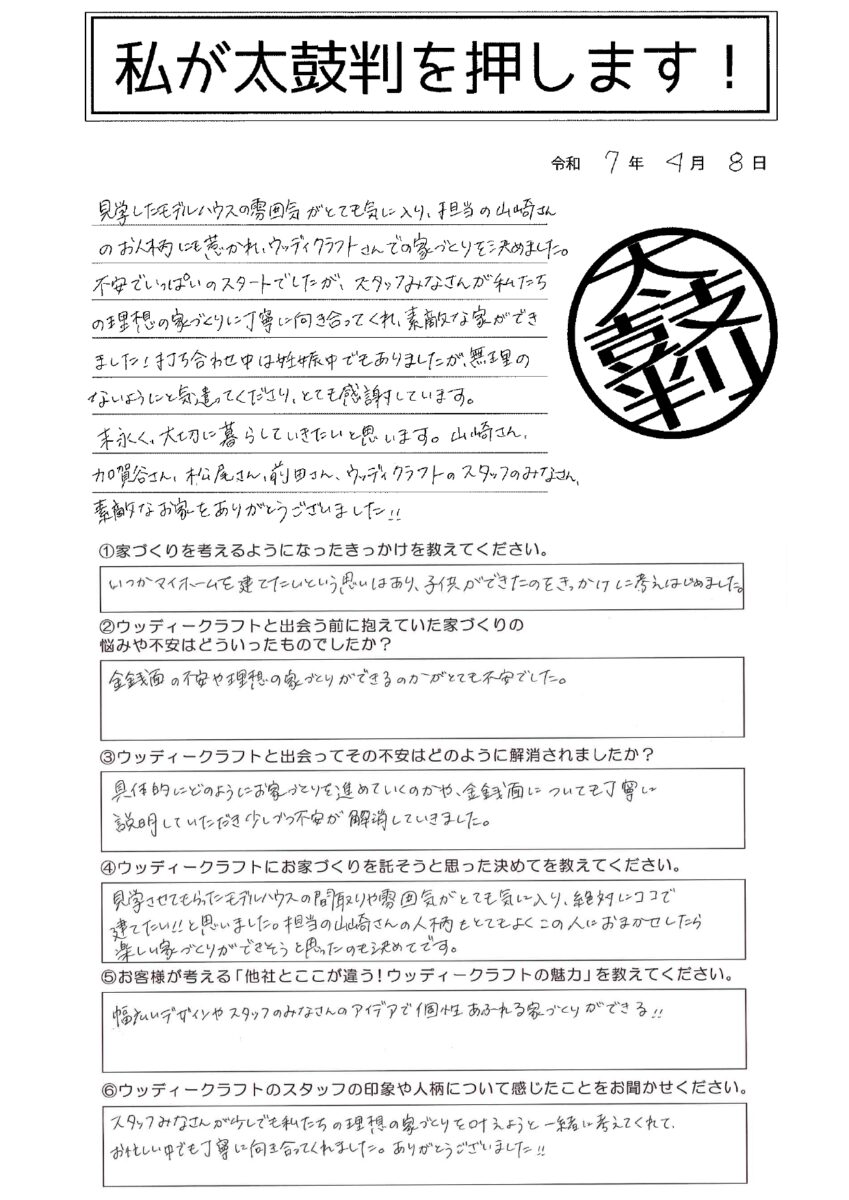 私が太鼓判を押します！
令和 7年 4月 8日
見学したモデルハウスの雰囲気がとても気に入り、担当の山崎さん
のお人柄にも惹かれ、ウッディクラフトさんでの家づくりを決めました。
不安でいっぱいのスタートでしたが、スタッフみなさんが私たち
の理想の家づくりに丁寧に向き合ってくれ、素敵な家ができ
ました！打ち合わせ中は妊娠中でもありましたが、無理の
ないようにと気遣ってくださり、とても感謝しています。
末永く、大切に暮らしていきたいと思います。山崎さん、
加賀谷さん、松尾さん、前田さん、ウッディクラフトのスタッフのみなさん、
素敵なお家をありがとうございました!!
太鼓判
①家づくりを考えるようになったきっかけを教えてください。
いつかマイホームを建てたいという思いはあり、子供ができたのをきっかけに考えはじめました。
②ウッディークラフトと出会う前に抱えていた家づくりの
悩みや不安はどういったものでしたか？
金銭面の不安や理想の家づくりができるのかがとても不安でした。
③ウッディークラフトと出会ってその不安はどのように解消されましたか？
具体的にどのようにお家づくりを進めていくのかや、金銭面についても丁寧に
説明していただき少しづつ不安が解消していきました。
④ウッディークラフトにお家づくりを託そうと思った決めてを教えてください。
見学させてもらったモデルハウスの間取りや雰囲気がとても気に入り、絶対にココで
建てたい!!と思いました。担当の山崎さんの人柄もとてもよくこの人におまかせしたら
楽しい家づくりができそうと思ったのも決めてです。
⑤お客様が考える「他社とここが違う！ウッディークラフトの魅力」を教えてください。
幅広いデザインやスタッフのみなさんのアイデアで個性あふれる家づくりができる!!
⑥ウッディークラフトのスタッフの印象や人柄について感じたことをお聞かせください。
スタッフみなさんが少しでも私たちの理想の家づくりを叶えようと一緒に考えてくれて、
お忙しい中でも丁寧に向き合ってくれました。ありがとうございました!!